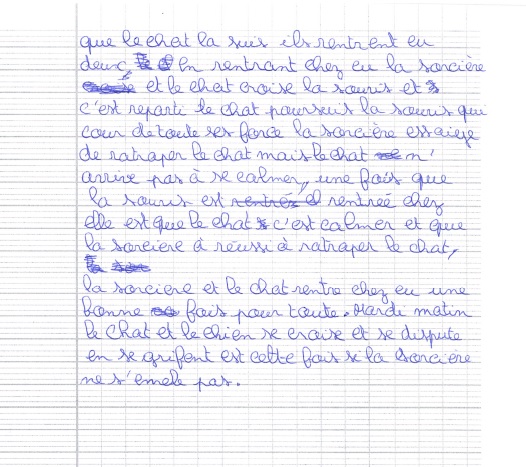 que le chat la suis ils rentrent eu
deux En rentrant chez eu la sorcière
et le chat croise la souris et
c'est reparti le chat poursuis la souris qui
cour de toute ses force la sorcière essaieje
de ratraper le chat mais le chat n'
arrive pas à se calmer, une fois que
la souris est rentrée chez
elle est que le chat c'est calmer et que
la sorciere à réussi à ratraper le chat,
la sorciere et le chat rentre chez eu une
bonne fois pour toute. Mardi matin
le chat et le chien se croise et se dispute
en se grifent est cette fois si la sorcière
ne s'emele pas.